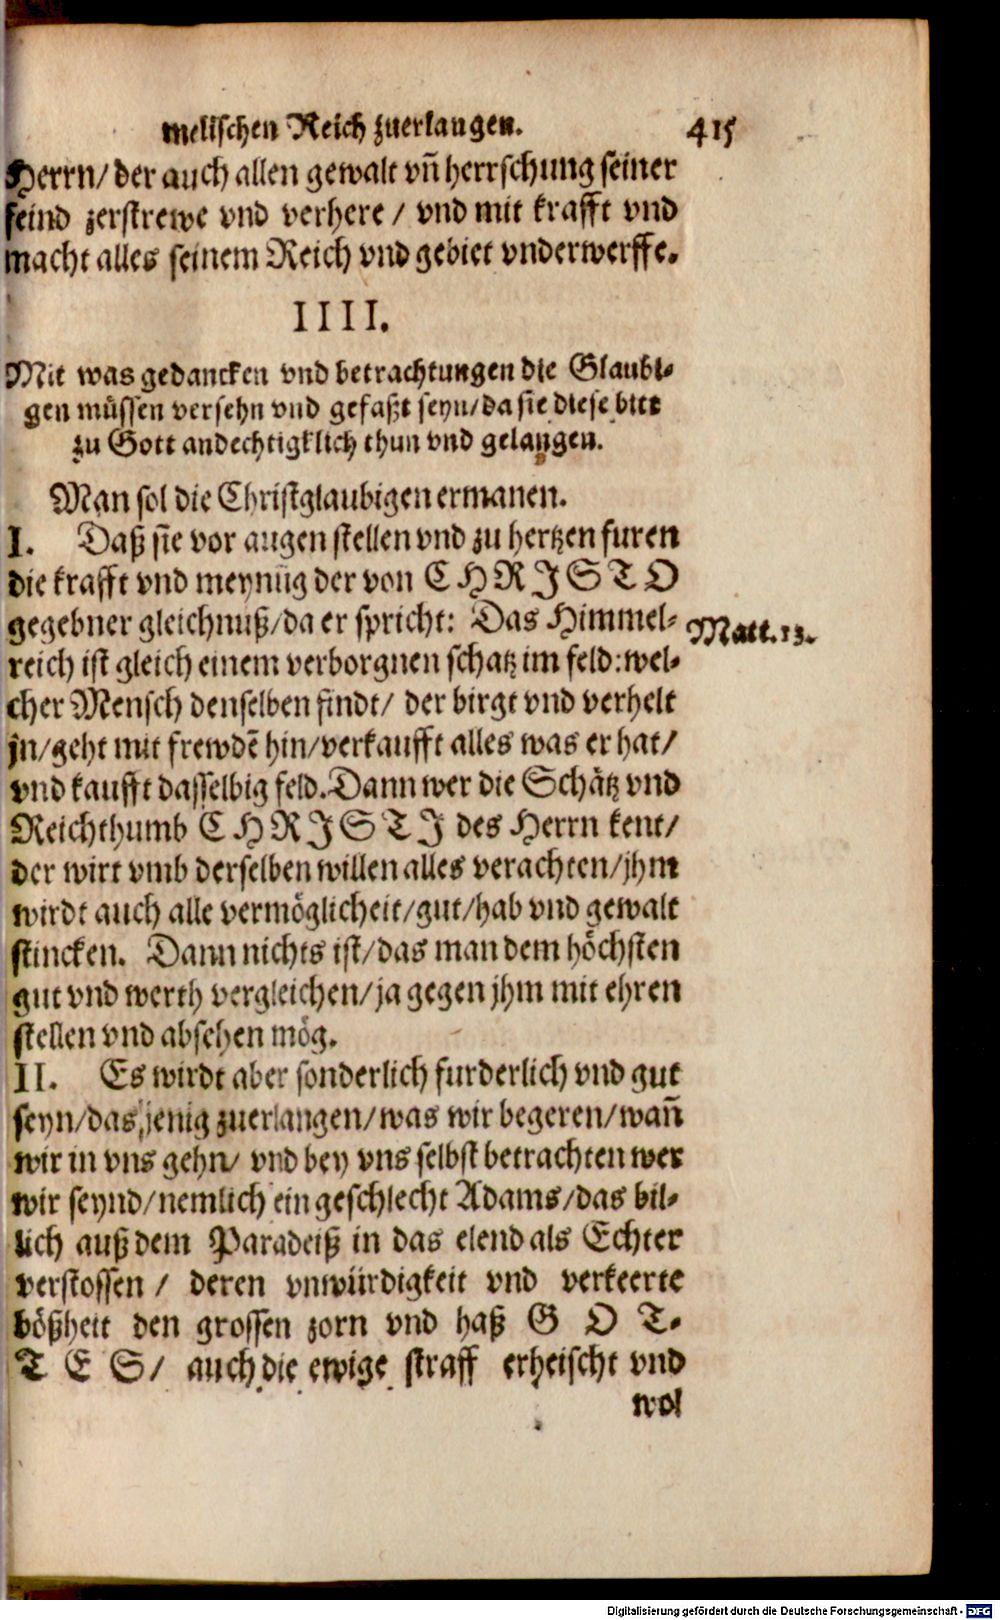 melischen Reich zuerlangen. 415
Herrn/ der auch allen gewalt vn̄ herrschung seiner
feind zerstrewe vnd verhere / vnd mit krafft vnd
macht alles seinem Reich vnd gebiet vnderwerffe.
IIII.
Mit was gedancken vnd betrachtungen die Glaubi-
gen müssen versehn vnd gefaßt seyn/da sie diese bitt
zu Gott andechtigklich thun vnd gelangen.
Man sol die Christglaubigen ermanen.
I. Daß sie vor augen stellen vnd zu hertzen furen
die krafft vnd meynūg der von CHRISTO
gegebner gleichnuß/da er spricht: Das Himmel- Matt.13.
reich ist gleich einem verborgnen schatz im feld: wel-
cher Mensch denselben findt/ der birgt vnd verhelt
jn/geht mit frewdē hin/verkaufft alles was er hat/
vnd kaufft dasselbig feld. Dann wer die Schätz vnd
Reichthumb CHRISTI des Herrn kent/
der wirt vmb derselben willen alles verachten/jhm
wirdt auch alle vermöglicheit/gut/hab vnd gewalt
stincken. Dann nichts ist/das man dem höchsten
gut vnd werth vergleichen/ja gegen jhm mit ehren
stellen vnd absehen mög.
II. Es wirdt aber sonderlich furderlich vnd gut
seyn/das jenig zuerlangen/was wir begeren/wan̄
wir in vns gehn/ vnd bey vns selbst betrachten wer
wir seynd/nemlich ein geschlecht Adams/das bil-
lich auß dem Paradeiß in das elend als Echter
verstossen / deren vnwürdigkeit vnd verkeerte
bößheit den grossen zorn vnd haß GOT-
TES/ auch die ewige straff erheischt vnd
wol
Digitalisierung gefördert durch die Deutsche Forschungsgemeinschaft - DFG